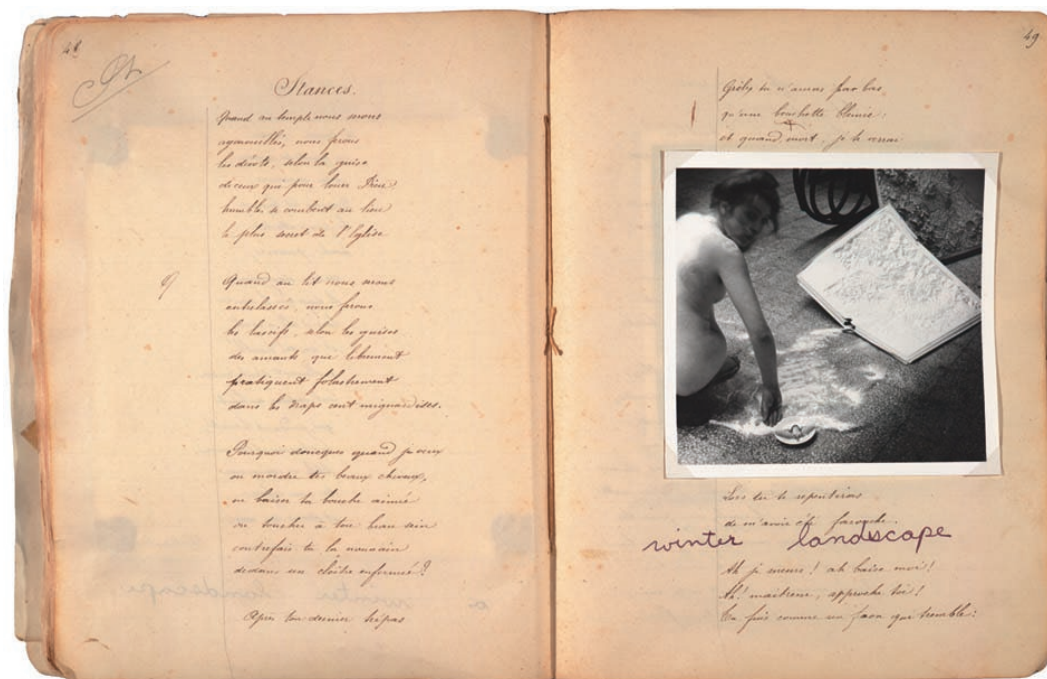 48
Stances.
Quand au temple nous serons
agenouillés, nous ferons
les dévots, selon la guise
de ceux qui pour louer Dieu
humbles se courbent au lieu
le plus secret de l'Eglise
Quand au lit nous serons
entrelassés, nous ferons
les lascifs, selon les guises
des amants qui librement
pratiquent folastrement
dans les draps cent mignardises.
Pourquoi doncques quand je veux
ou mordre tes beaux cheveux,
ou baiser ta bouche aimée
ou toucher à ton beau sein
contrefais tu la nonnain
dedans un cloître enfermée?
Après ton dernier trépas
49
tu n'auras plus bas
qu'une bouchette blémie;
et quand, mort, je te verrai
Lors tu te repentiras
de m'avoir été farouche.
winter landscape
Ah je meurs! ah baise moi!
Ah! maitresse, approche toi!
Tu fuis comme un faon qui tremble: